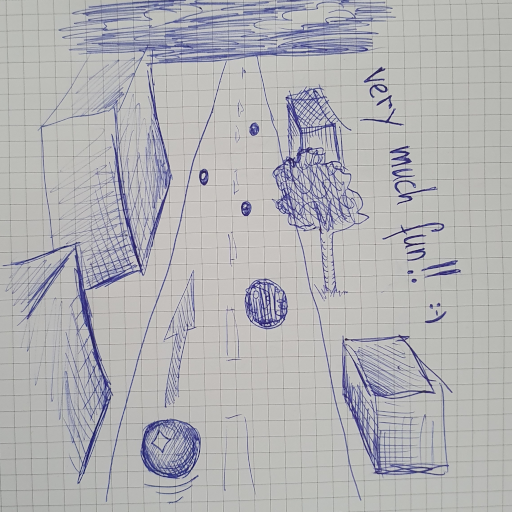 very much fun!! :-)